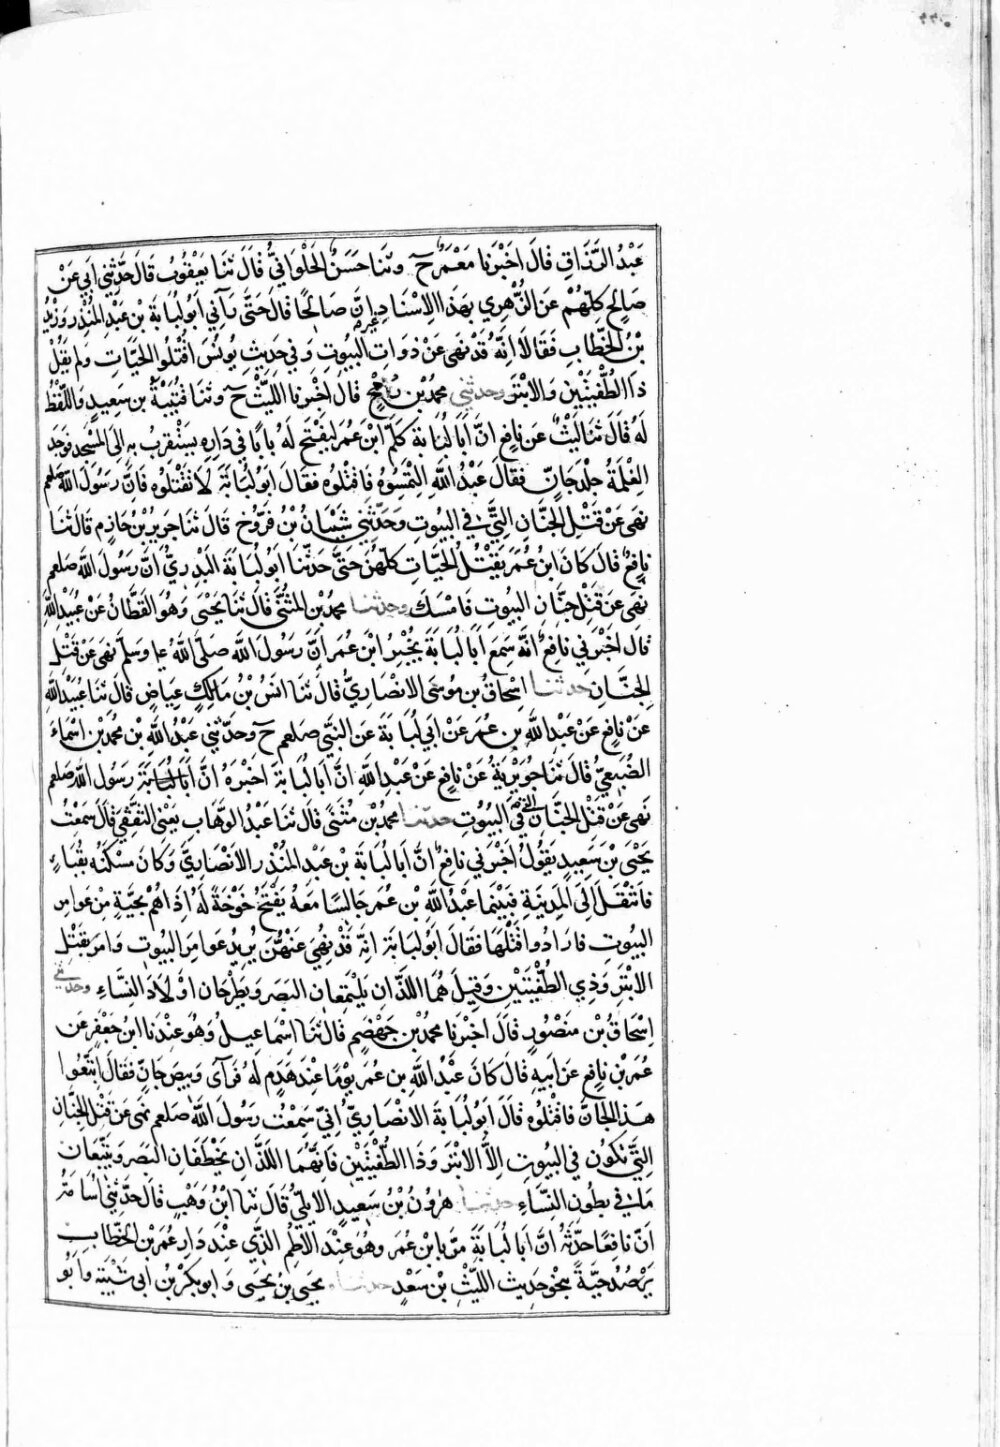 عَبْدُ الرَّزَّاقِ قَالَ اَخْبَرَنَا مَعْمَرٌ ح وثَنَا حَسَنٌ الحَلْوَانِيُّ قَالَ ثَنَا يَعْقُوبُ قَالَ حَدَّثَنِي اَبِي عَنْ
صَالِحٍ كلّهُمْ عَنِ الزُّهْرِي بِهَذَا الاِسْنَادِ غير اَنَّ صَالِحًا قَالَ حَتَّى رَآنِي اَبُو لُبَابَةَ بْن عَبْدِ المُنْذِرِ وَزَيْدُ
بْنُ الخَطَّابِ فَقَالَا اِنَّهُ قَدْ نَهَى عَنْ ذَوَاتِ البُيوتِ وَفِي حَدِيثِ يُونُسَ اقْتُلُوا الحَيَّاتِ وَلَم يَقُلْ
ذَا الطُّفْيَتَيْنِ وَالاَبْتَرَ وحدثني محمدُ بْن رُمْحٍ قَالَ اَخْبَرَنا اللَيْثُ ح وثَنَا قُتَيْبَةُ بن سَعِيدٍ وَاللَّفْظُ
لَهُ قَالَ ثَنَا لَيْثٌ عَنْ نَافِعٍ اَنَّ اَبَا لُبَابَةَ كَلَّمَ ابْنَ عُمَرَ لِيَفْتَحَ لَهُ بَابًا فِي دَارِهِ يَسْتَقْرِبُ بِهِ اِلَى المَسْجِدِ فَوَجَدَ
الغِلْمَةُ جِلْدَ جَانٍّ فَقَالَ عَبْدُ اللَّهِ الْتَمِسُوهُ فَاقْتُلُوهُ فَقَالَ اَبُو لُبَابَةَ لَا تَقْتُلُوهُ فَاِنَّ رَسُولَ اللَّهِ صلعم
نَهَى عَنْ قَتْلِ الجِنَّانِ الَّتِي فِي البُيُوتِ وَحَدَّثَنِي شَيْبَانُ بْنُ فَرُّوخٍ قَالَ ثَنَا جَرِيرُ بْنُ حَازِمٍ قَالَ ثَنَا
نَافِعٌ قَالَ كَانَ ابنُ عُمَرَ يَقْتُلُ الحَيَّاتِ كلَّهُنَّ حَتَّى حَدَّثَنَا اَبُو لُبَابَةَ البَدْرِيُّ اَنَّ رَسُولَ اللَّهِ صلعم
نَهَى عَنْ قَتْلِ جِنَّانِ البيوتِ فَامْسَكَ وحدثنا محمدُ بْن المُثَنَّى قَالَ ثَنَا يَحْيَى وَهُوَ القَطَّانُ عَنْ عُبَيْدِ اللَّهِ
قَالَ اَخْبَرَنِي نَافِعٌ اَنَّهُ سَمِعَ اَبَا لُبَابَةَ يُخْبِرُ ابْنَ عُمَرَ اَنَّ رَسُولَ اللَّهِ صَلَّى اللَّهُ ع‍ وَسلّم نَهَى عَنْ قَتْلِ
الجِنَّانِ حدثنا اِسْحَاقُ بن مُوسَى الانْصَارِيُّ قَالَ ثَنَا اَنَسُ بْنُ مَالِكٍ عِيَاضٍ قَالَ ثَنَا عُبَيْدُ اللَّهِ
عَنْ نَافِعٍ عَنْ عَبْدِ اللَّهِ بنِ عُمَرَ عَنْ اَبِي لُبَابَةَ عَنِ النَّبِيِّ صلعم ح وحَدَّثَنِي عَبْدُ اللَّهِ بْن مُحَمَّدِ بْنِ اَسْمَاءَ
الضُّبَعِيُّ قَالَ ثَنَا جُوَيْرِيَةُ عَنْ نَافِعٍ عَنْ عَبْدِ اللَّهِ اَنَّ اَبَا لُبَابَةَ اَخْبَرَهُ اَنَّ اَبَا لُبَابَةَ رَسُولَ اللَّهِ صلعم
نَهَى عَنْ قَتْلِ الجِنَّانِ التي فِي البُيُوتِ حدثنا محمدُ بْن مُثَنَّى قَالَ ثَنَا عَبْدُ الوَهَّابِ يَعْنِي الثَّقَفِيّ قَالَ سَمِعْتُ
يَحْيَى بْنَ سَعِيدٍ يَقُولُ اَخْبَرَنِي نَافِعٌ اَنَّ اَبَا لُبَابَةَ بْن عَبْدِ المُنْذِرِ الاَنْصَارِيَّ وَكَانَ مَسْكَنُهُ بِقُبَاءٍ
فَانْتَقَلَ اِلَى المَدِينَةِ فَبَيْنَمَا عَبْدُ اللَّهِ بْن عُمَرَ جَالِسًا مَعَهُ يَفْتَحُ خَوْخَةً لَهُ اِذَا هُمْ بِحَيَّةٍ مِنْ عَوَامِرِ
البيُوتِ فَارَادُوا قَتْلَهَا فَقَالَ اَبُو لُبَابَةَ اِنَّهُ قَدْ نُهِيَ عَنْهُنَّ يُرِيدُ عَوَامِرَ البيُوت وَاَمَرَ بِقَتْلِ
الاَبْتَرِ وَذِي الطُّفْيَتَيْنِ وَقِيلَ هُمَا اللَّذَانِ يَلْتَمِعَانِ البَصَرَ وَيَطْرَحَانِ اَوْلَادَ النِّسَاءِ وحدثني
اِسْحَاقُ بْن مَنْصُورٍ قَالَ اَخْبَرَنَا محمدُ بْن جَهْضَمٍ قَالَ ثَنَا اِسْمَاعِيلُ وَهُوَ عِنْدَنَا ابنُ جَعْفَرٍ عَن
عُمَرَ بْنِ نَافِعٍ عَنْ اَبِيهِ قَالَ كَانَ عَبْدُ اللَّهِ بن عُمَرَ يَوْمًا عِنْدَ هَدَمٍ لَهُ فَرَآى وَبِيصَ جَانٍّ فَقَالَ اتَّبِعُوا
هَذَا الجَانَّ فَاقْتُلُوهُ قَالَ اَبُو لُبَابَةَ الاَنْصَارِيُّ اِنِّي سَمِعْتُ رَسُولَ اللَّهِ صلعم نَهَى عَنْ قَتْلِ الجِنَّانِ
الَّتِي تَكُون فِي البيُوتِ اِلَّا الاَبْتَرَ وَذَا الطُّفْيَتَيْنِ فَاِنَّهُمَا اللَّذَانِ يَخْطَفَانِ البَصَرَ وَيَتَّبِعَانِ
مَا فِي بُطُونِ النِّسَاءِ حدثنا هَارُونُ بْنُ سَعِيدٍ الايْلِيُّ قَالَ ثنا ابْنُ وَهْبٍ قَالَ حَدَّثَنِي اُسَامَةُ
اَنَّ نَافِعًا حَدَّثَهُ اَنَّ اَبَا لُبَابَةَ مَرَّ بِابْنِ عُمَرَ وَهُوَ عِنْدَ الاُطُمِ الَّذِي عِنْدَ دَارِ عُمَرَ بْنِ الخَطَّابِ
يَرْصُدُ حَيَّةً بِنَحْوِ حَدِيثِ اللَيْثِ بْنِ سَعْدٍ حدثنا يحْيَى بن يَحْيَى وَابو بَكْرِ بْنُ ابِي شَيْبَةَ وَاَبُو